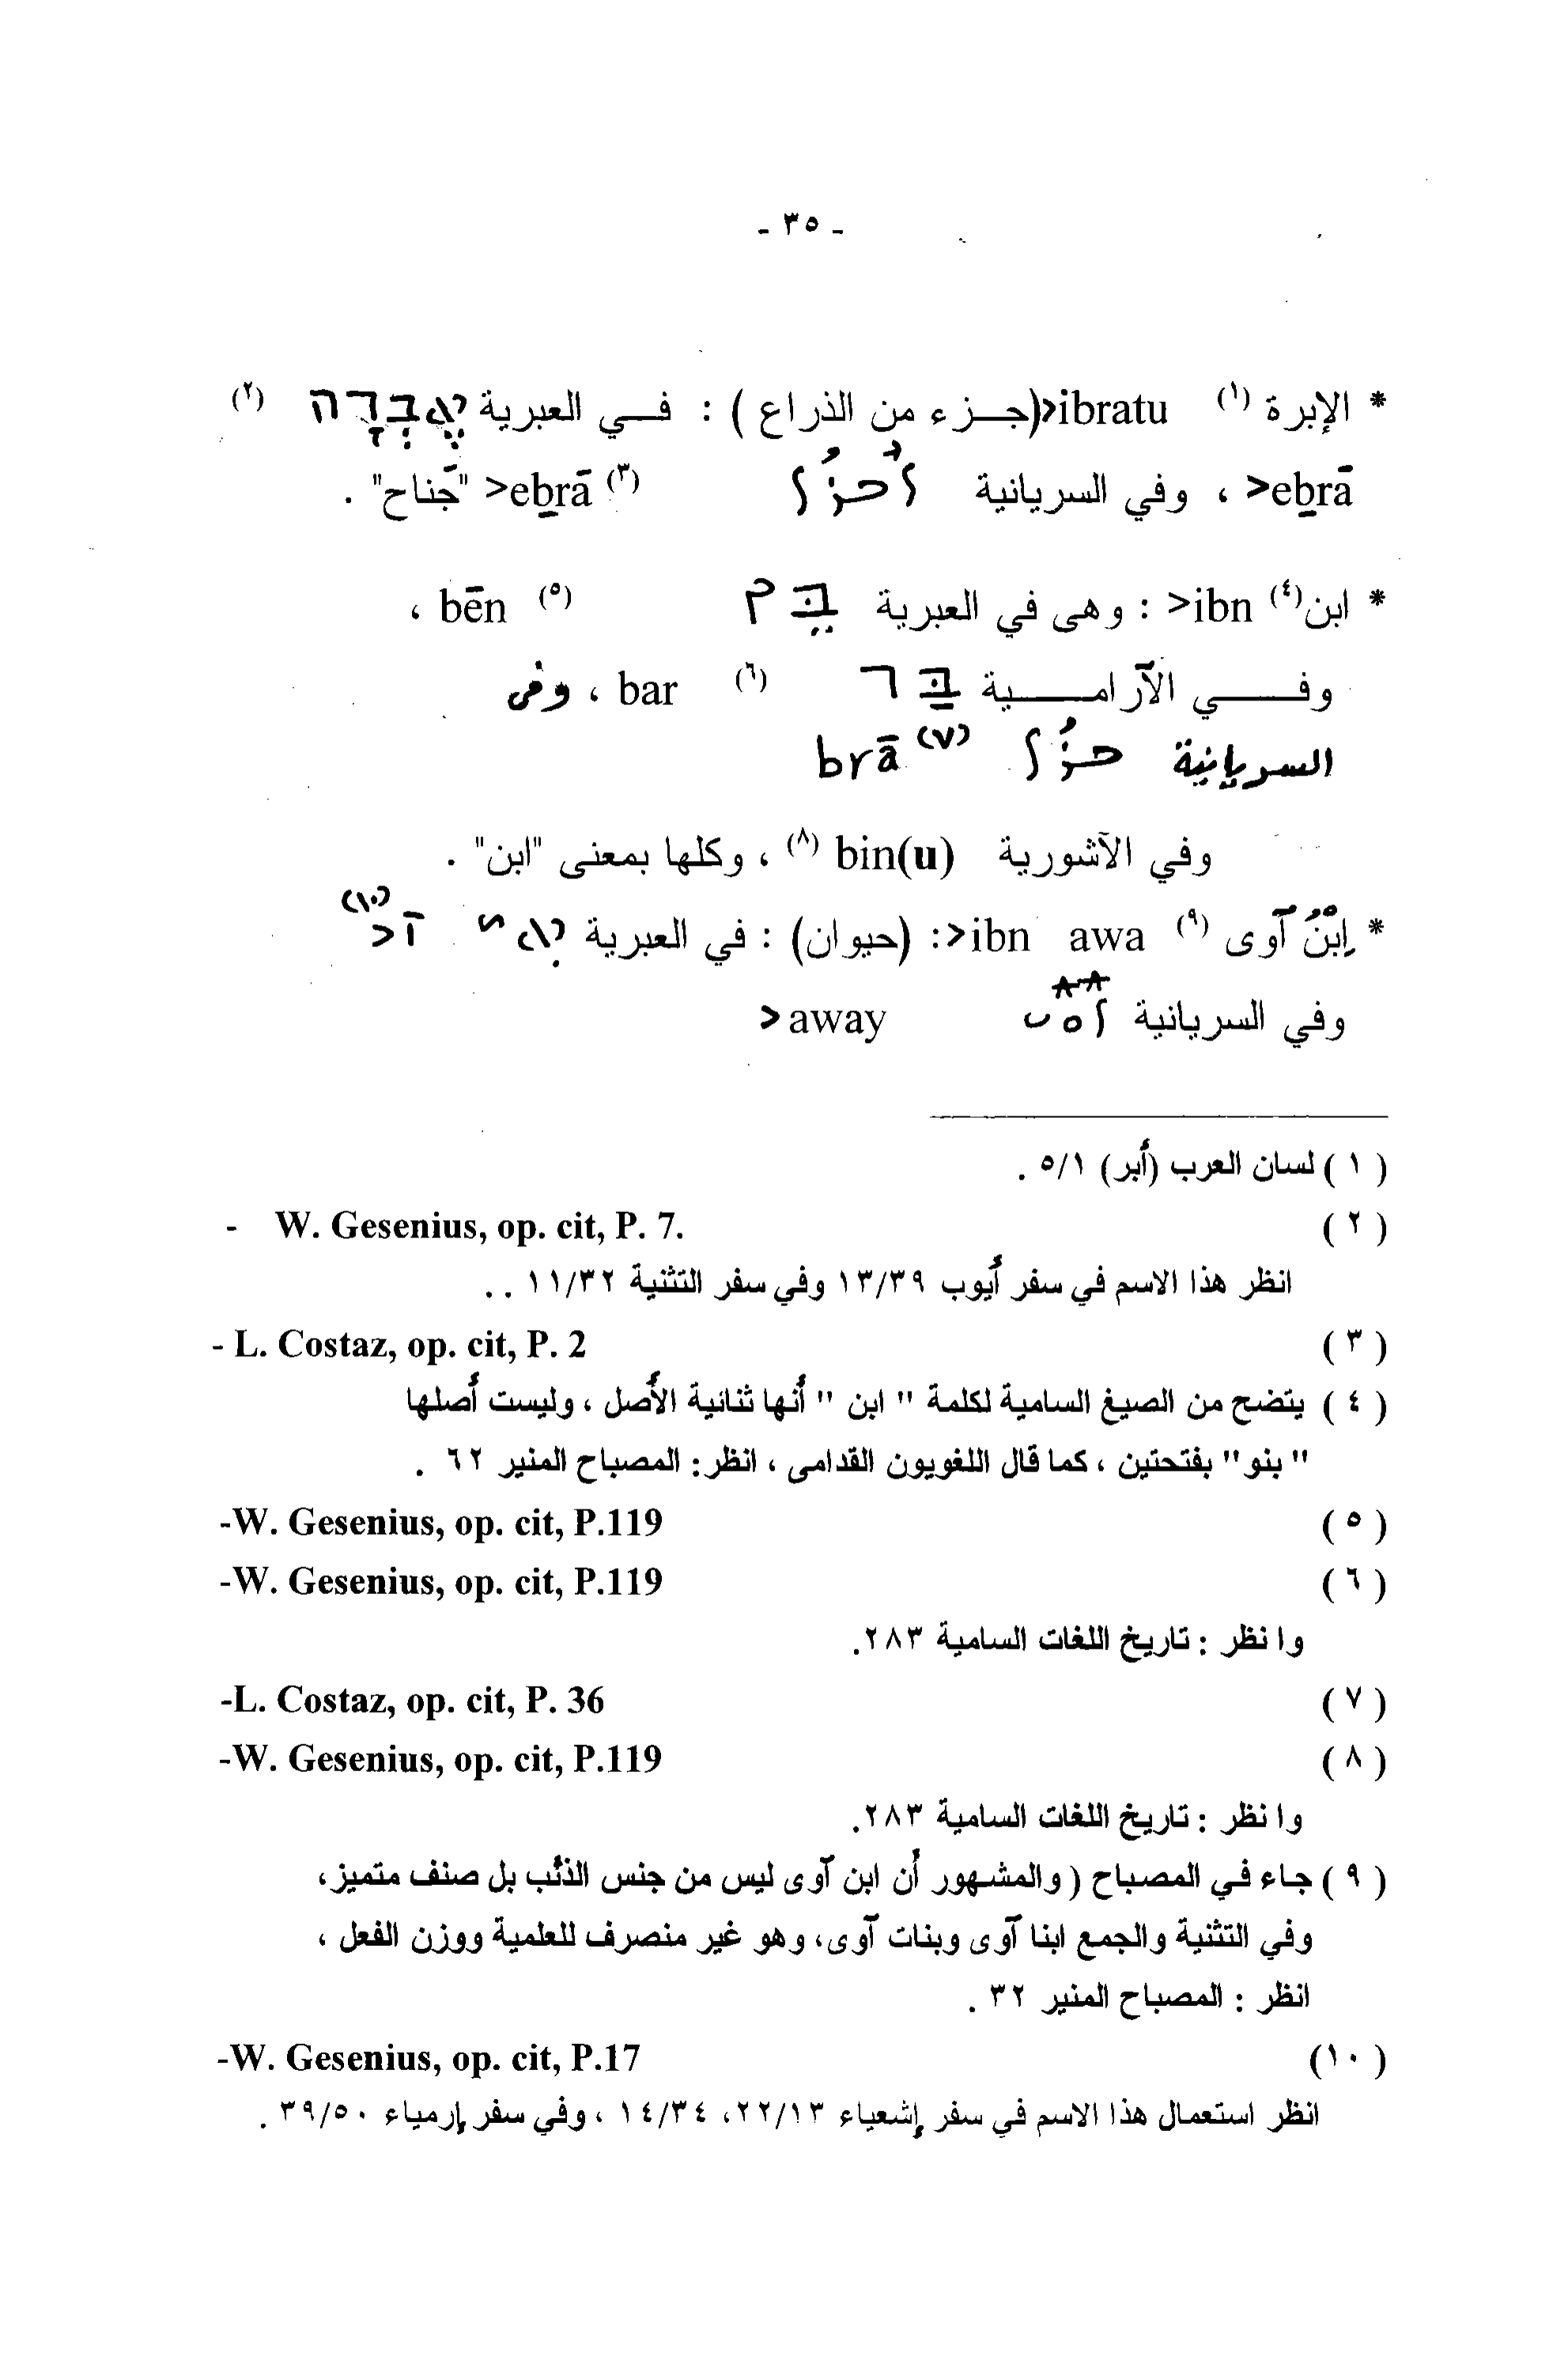 - ٣٥ -
* الإبرة (١) ibratu<(جزء من الذراع ) : في العبرية אֶבְרָה (٢)
>ebrā ، وفي السريانية ܐܒܪܐ (٣) >ebrā "جَناح" .
* ابن(٤) >ibn : وهى في العبرية בֵּן (٥) bēn ،
وفي الآرامية בַּר (٦) bar ، وفى
السريانية ܒܪܐ (٧) brā
وفي الآشورية bin(u) (٨) ، وكلها بمعنى "ابن" .
* اِبْنُ آوى (٩) ibn awa<: (حيوان) : في العبرية אִי >ī (١٠)
وفي السريانية ܐܘܝ >away
( ١ ) لسان العرب (أبر) ٥/١ .
( ٢ ) - W. Gesenius, op. cit, P. 7.
انظر هذا الاسم في سفر أيوب ١٣/٣٩ وفي سفر التثنية ١١/٣٢ . .
( ٣ ) - L. Costaz, op. cit, P. 2
( ٤ ) يتضح من الصيغ السامية لكلمة " ابن " أنها ثنائية الأصل ، وليست أصلها
" بنو" بفتحتين ، كما قال اللغويون القدامى ، انظر: المصباح المنير ٦٢ .
( ٥ ) -W. Gesenius, op. cit, P.119
( ٦ ) -W. Gesenius, op. cit, P.119
وا نظر : تاريخ اللغات السامية ٢٨٣.
( ٧ ) -L. Costaz, op. cit, P. 36
( ٨ ) -W. Gesenius, op. cit, P.119
وا نظر : تاريخ اللغات السامية ٢٨٣.
( ٩ ) جاء في المصباح (والمشهور أن ابن آوى ليس من جنس الذئب بل صنف متميز،
وفي التثنية والجمع ابنا آوى وبنات آوى، وهو غير منصرف للعلمية ووزن الفعل ،
انظر : المصباح المنير ٣٢ .
(١٠ ) -W. Gesenius, op. cit, P.17
انظر استعمال هذا الاسم في سفر إشعياء ٢٢/١٣، ١٤/٣٤ ، وفي سفر إرمياء ٣٩/٥٠ .